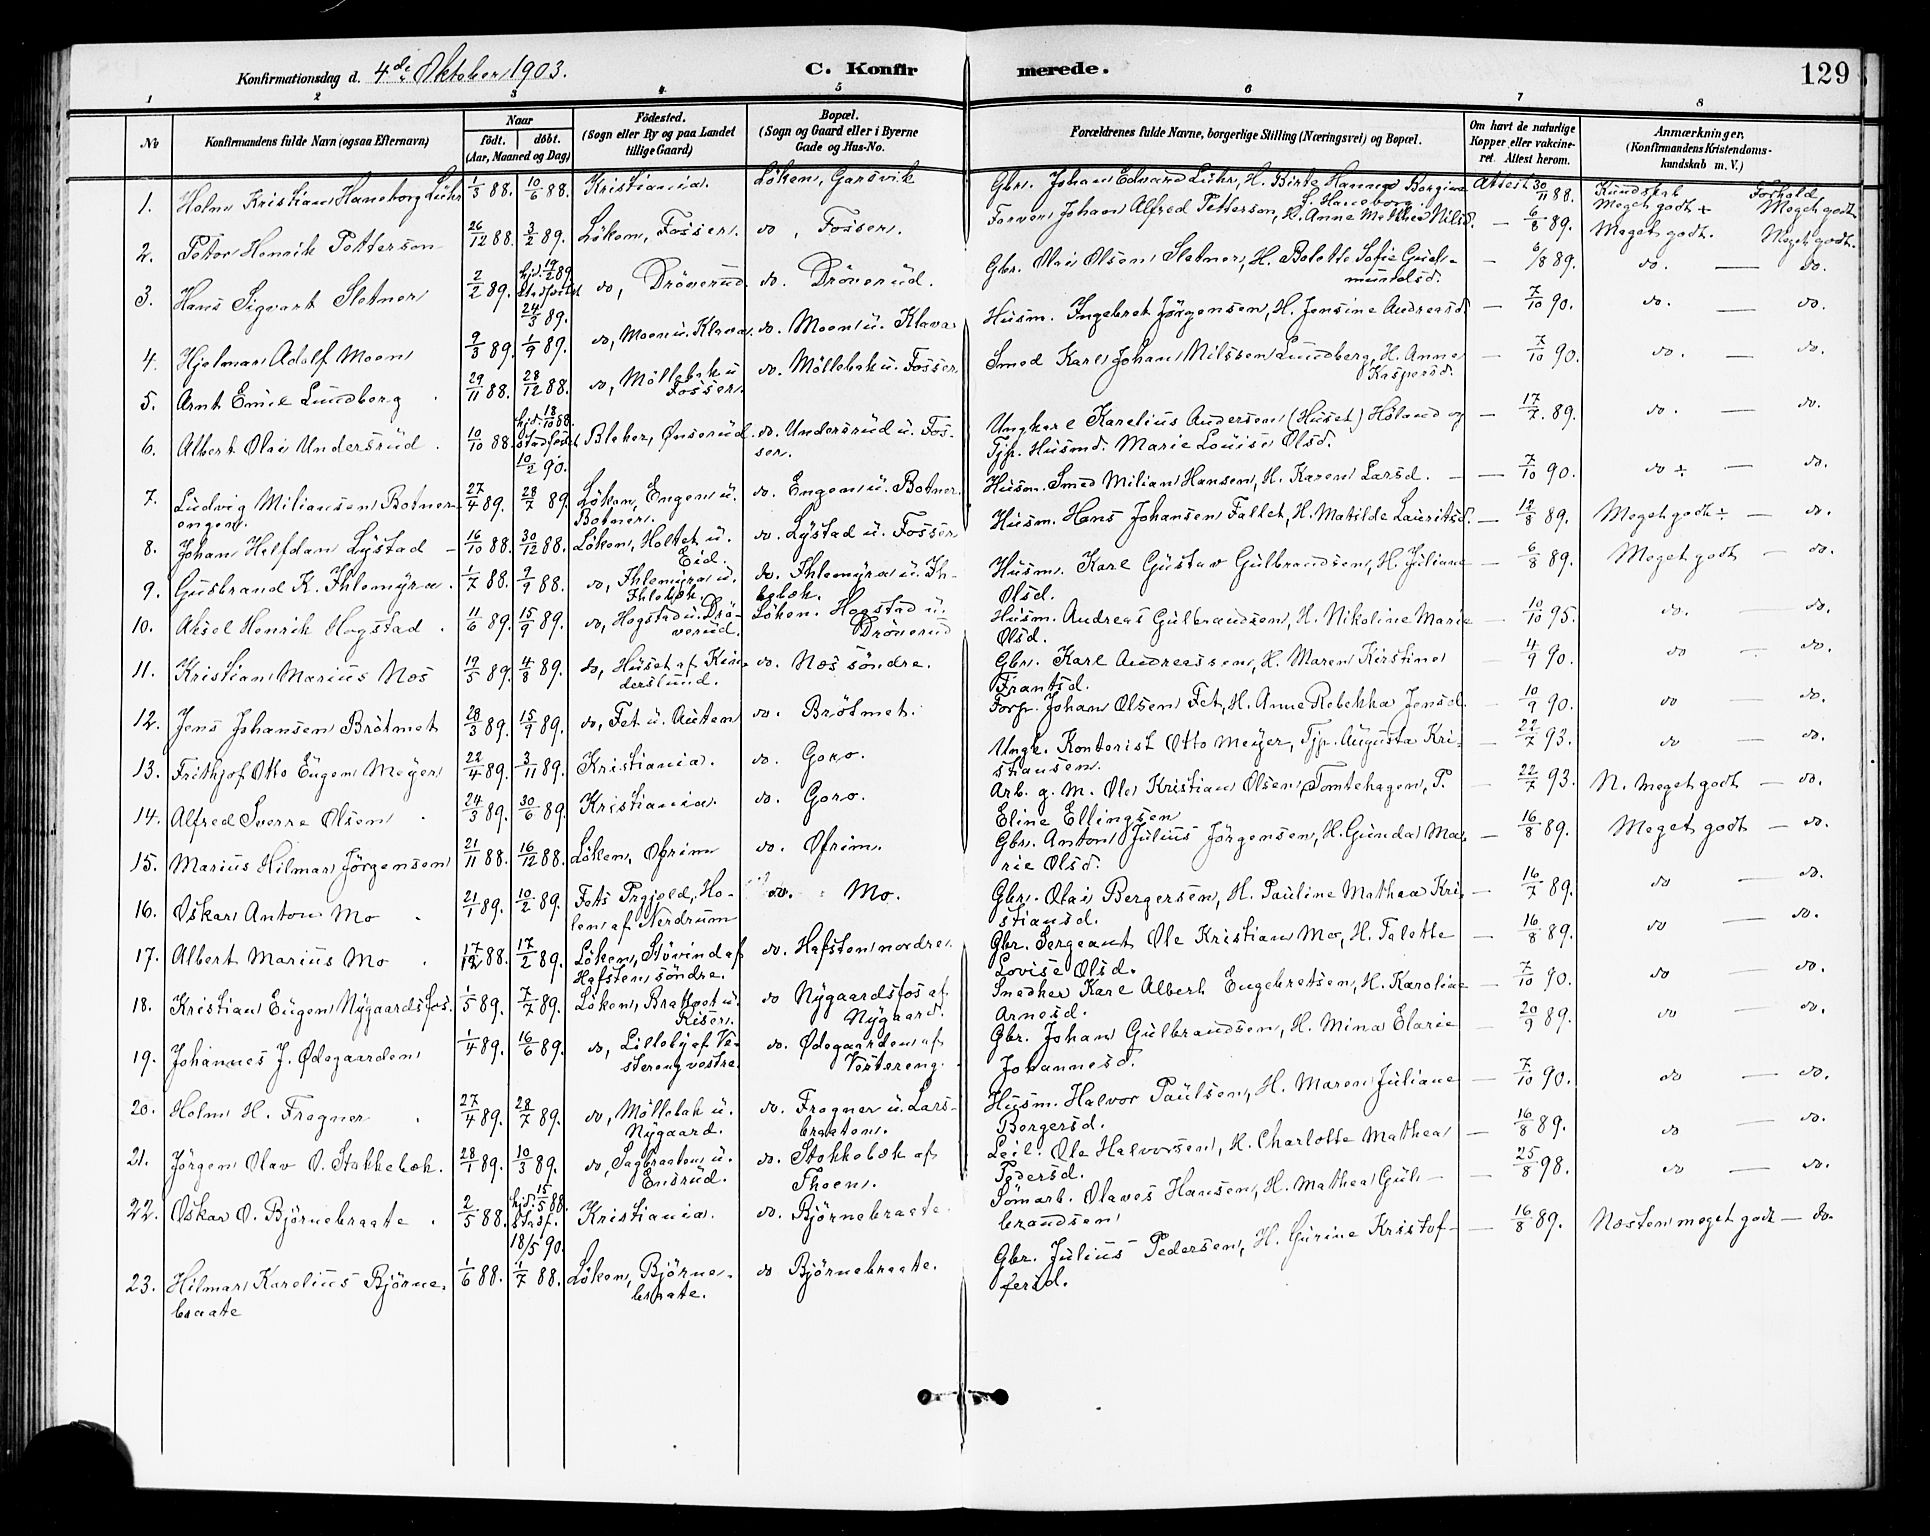 Konfirmationsdag d. 4de Oktober 1903.
C. Konfirmerede.
129
1 2 3 4 5 6 7 8
No
Konfirmandens fulde Navn (ogsaa Efternavn)
Naar
født. døbt.
(Aar, Maaned og Dag)
Fødested.
(Sogn eller By og paa Landet
tillige Gaard)
Bopæl.
(Sogn og Gaard eller i Byerne
Gade og Hus-No.
Forældrenes fulde Navne, borgerlige Stilling (Næringsvei) og Bopæl.
Om havt de naturlige
Kopper eller vakcine-
ret. Attest herom.
Anmærkninger.
(Konfirmandens Kristendoms-
kundskab m. V.)
Kundskab Forhold
1. Holm Kristian Haneborg Lühr 1/3 88. 10/6 88. Kristiania. Löken, Garsvik Gbr. Johan Edvard Lühr, H. Birte Hanna Borgine Attest 30/11 88. Meget godt ÷ Meget godt
f. Haneborg.
2. Petter Henrik Petterson 26/12 88. 3/2 89. Löken, Fosser. do, Fosser. Farver Johan Alfred Petterson, H. Anne Mathea Nilsd. — 6/8 89. Meget godt. Meget godt.
3. Hans Sigvart Sletner 2/2 89. hjd. 19/2 89 stadfestet 24/3 89. do, Dröverud. do. Dröverud. Gbr. Olai Olsen Sletner, H. Bolette Sofie Gud-
mundsd. — 6/8 89. do. — do.
4. Hjelmar Adolf Moen 9/3 89. 1/9 89. do, Moen u. Klava do. Moen u. Klava Husm. Ingebret Jörgensen, H. Jensine Andreasd. — 7/10 90. do. — do.
5. Arnt Emil Lundberg 29/11 88. 28/12 88. do, Möllebæk u. Fosser. do. Möllebæk u. Fosser. Smed Karl Johan Nilssen Lundberg, H. Anne
Kaspersd. — 7/10 90. do. — do.
6. Albert Olai Undersrud 10/10 88. hjd. 18/10 88. stadfestet 10/2 90. Blaker, Önserud do. Undersrud u. Fosser. Ungkarl Karelius Andersen (Huset) Höland og
Tjp. Husmd. Marie Louise Olsd. — 17/7 89. do. — do.
7. Ludvig Miliansen Botner-
engen. 27/4 89. 28/7 89. Löken, Engen u. Botner. do. Engen u. Botner. Husm. Smed Milian Hansen, H. Karen Larsd. — 7/10 90. do ÷ — do.
8. Johan Halfdan Lystad 16/10 88. 30/12 88. Löken, Holtet u. Eid. do. Lystad u. Fosser Husm. Hans Johansen Fallet, H. Matilde Lauritsd. — 12/8 89. Meget godt ÷ — do.
9. Gusbrand K. Ihlemyra. 1/7 88. 9/9 88. do, Ihlemyra u. Ihlebæk. do. Ihlemyra u. Ih-
lebæk. Husm. Karl Gustav Gulbrandsen, H. Juliane
Olsd. — 6/8 89. Meget godt — do.
10. Aksel Henrik Hogstad 11/6 89. 15/9 89. do, Hogstad u. Drö-
verud. Löken. Hogstad u.
Dröverud Husm. Andreas Gulbrandsen, H. Nikoline Marie
Olsd. — 10/10 95. do. — do.
11. Kristian Marius Næs 19/5 89. 4/8 89. do, Huset af Kin-
derslund. do. Næs söndre. Gbr. Karl Andreassen, H. Maren Kirstine
Frantsd. — 4/9 90. do — do.
12. Jens Johansen Brötmet 28/3 89. 15/9 89. do, Fet u. Auten do. Brötmet. Forp. Johan Olsen Fet, H. Anne Rebekka Jensd. — 10/9 90. do — do.
13. Frithjof Otto Eugen Meyer 22/4 89. 3/11 89. Kristiania. do. Goro. Ungk. Kontorist Otto Meyer, Tjp. Augusta Kri-
stiansen. — 22/7 93. do — do.
14. Alfred Sverre Olsen 24/3 89. 30/6 89. Kristiania. do. Goro. Arb. g. M. Ole Kristian Olsen Tomtehagen, P.
Eline Ellingsen — 22/7 93. N. meget godt — do.
15. Marius Hilmar Jörgensen 21/11 88. 16/12 88. Löken, Ofrim do. Ofrim. Gbr. Anton Julius Jörgensen, H. Gunda Ma-
rie Olsd. — 16/8 89. Meget godt — do.
16. Oskar Anton Mo 21/1 89. 10/2 89. Fets Prgjeld, Ho-
len af Nerdrum do. Mo. Gbr. Olai Bergersen, H. Pauline Mathea Kri-
stiansd. — 16/7 89. do — do.
17. Albert Marius Mo 17/12 88. 17/2 89. Löken, Stövind af
Hafsten söndre. do. Hafsten nordre. Gbr. Sergeant Ole Kristian Mo, H. Talette
Lovise Olsd. — 16/8 89. do — do.
18. Kristian Eugen Nygaardsfos. 1/5 89. 7/7 89. Löken, Brattvet u.
Riser. do Nygaardsfos af
Nygaard. Snedker Karl Albert Engebretsen, H. Karoline
Arnesd. — 7/10 90. do — do.
19. Johannes J. Ødegaarden 1/4 89. 16/6 89. do, Lilleby af Ve-
stereng vestre. do. Ødegaarden af
Vestereng. Gbr. Johan Gulbrandsen, H. Mina Elarie
Johannesd. — 20/9 89. do — do.
20. Holm H. Frogner 27/4 89. 28/7 89. do, Möllebæk u.
Nygaard. do. Frogner u. Lars-
braaten. Husm. Halvor Paulsen, H. Maren Juliane
Bergersd. — 7/10 90. do — do.
21. Jörgen Olav O. Stokkebæk. 28/1 89. 10/3 89. do, Sagbraaten u.
Ensrud. do. Stokkebæk af
Thoen. Leil. Ole Halvorsen, H. Charlotte Mathea
Pedersd. — 16/8 89. do — do.
22. Oskar O. Björnebraate 2/5 88. hjd. 15/5 88. Stadf. 18/5 90. Kristiania. do. Björnebraate. Tömarb. Olaves Hansen, H. Mathea Gul-
brandsen — 25/8 98. do — do.
23. Hilmar Karelius Björne-
braate 1/6 88. 1/7 88. Löken, Björne-
braate. do Björnebraate. Gbr. Julius Pedersen, H. Gurine Kristof-
fersd. — 16/8 89. Næsten meget godt — do.